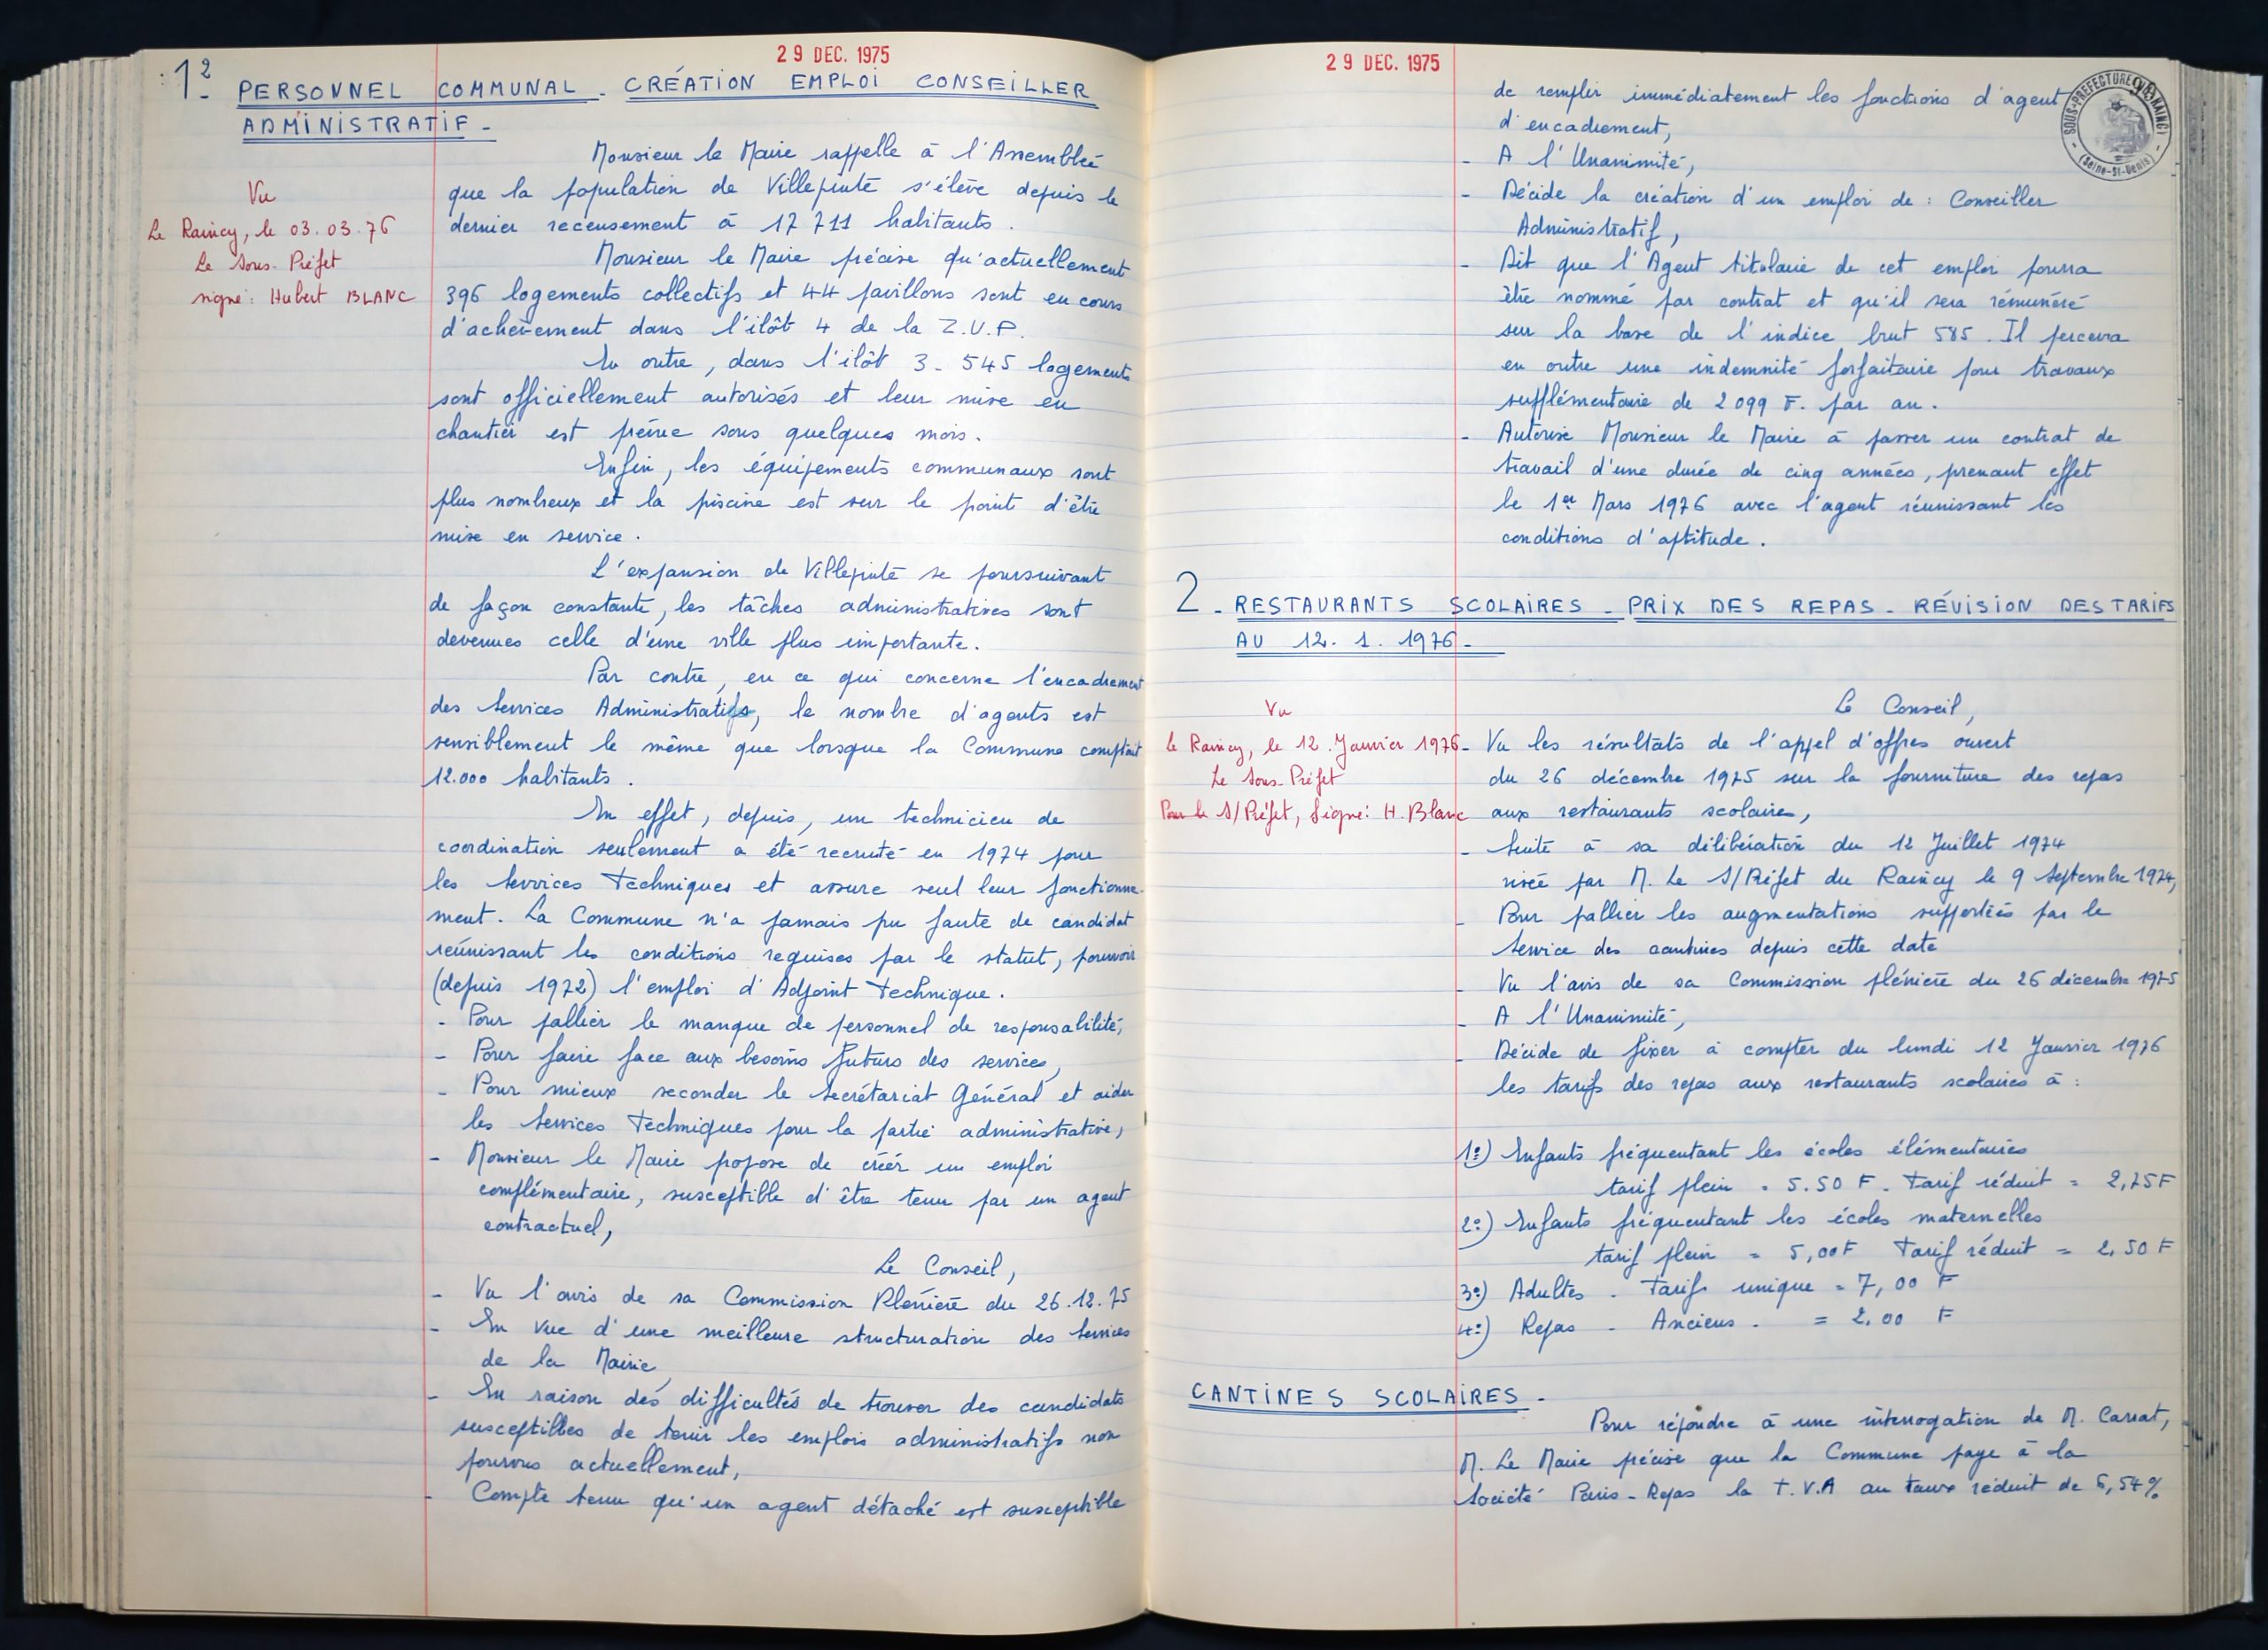 29 DEC. 1975
:1º- PERSONNEL COMMUNAL - CRÉATION EMPLOI CONSEILLER
ADMINISTRATIF -
Monsieur le Maire rappelle à l'Assemblée
que la population de Villepinte s'élève depuis le
dernier recensement à 17 711 habitants.
Monsieur le Maire précise qu'actuellement
396 logements collectifs et 44 pavillons sont en cours
d'achèvement dans l'ilôt 4 de la Z.U.P.
En outre, dans l'ilôt 3 - 545 logements
sont officiellement autorisés et leur mise en
chantier est prévue sous quelques mois.
Enfin, les équipements communaux sont
plus nombreux et la piscine est sur le point d'être
mise en service.
L'expansion de Villepinte se poursuivant
de façon constante, les tâches administratives sont
devenues celle d'une ville plus importante.
Par contre, en ce qui concerne l'encadrement
des Services Administratifs, le nombre d'agents est
sensiblement le même que lorsque la Commune comptait
12.000 habitants.
En effet, depuis, un technicien de
coordination seulement a été recruté en 1974 pour
les Services Techniques et assure seul leur fonctionne-
ment. La Commune n'a jamais pu faute de candidat
réunissant les conditions requises par le statut, pourvoir
(depuis 1972) l'emploi d'Adjoint Technique.
- Pour pallier le manque de personnel de responsabilité,
- Pour faire face aux besoins futurs des services,
- Pour mieux seconder le Secrétariat Général et aider
les Services Techniques pour la partie administrative,
- Monsieur le Maire propose de créer un emploi
complémentaire, susceptible d'être tenu par un agent
contractuel,
Le Conseil,
- Vu l'avis de sa Commission Plénière du 26.12.75
- En vue d'une meilleure structuration des Services
de la Mairie,
- En raison des difficultés de trouver des candidats
susceptibles de tenir les emplois administratifs non
pourvus actuellement,
- Compte tenu qu'un agent détaché est susceptible
Vu
Le Raincy, le 03.03.76
Le Sous-Préfet
signé: Hubert BLANC
29 DEC. 1975
SOUS-PREFECTURE DU RAINCY
(Seine-St-Denis)
de remplir immédiatement les fonctions d'agent
d'encadrement,
- A l'Unanimité,
- Décide la création d'un emploi de : Conseiller
Administratif,
- Dit que l'Agent titulaire de cet emploi pourra
être nommé par contrat et qu'il sera rémunéré
sur la base de l'indice brut 585. Il percevra
en outre une indemnité forfaitaire pour travaux
supplémentaire de 2 099 F. par an.
- Autorise Monsieur le Maire à passer un contrat de
travail d'une durée de cinq années, prenant effet
le 1er Mars 1976 avec l'agent réunissant les
conditions d'aptitude.
2 - RESTAURANTS SCOLAIRES - PRIX DES REPAS - RÉVISION DES TARIFS
AU 12. 1. 1976 -
Le Conseil,
- Vu les résultats de l'appel d'offres ouvert
du 26 décembre 1975 sur la fourniture des repas
aux restaurants scolaires,
- Suite à sa délibération du 12 Juillet 1974
visée par M. Le S/Préfet du Raincy le 9 Septembre 1974,
- Pour pallier les augmentations supportées par le
Service des cantines depuis cette date
- Vu l'avis de sa Commission plénière du 26 décembre 1975
- A l'Unanimité,
- Décide de fixer à compter du lundi 12 Janvier 1976
les tarifs des repas aux restaurants scolaires à :
1º) Enfants fréquentant les écoles élémentaires
tarif plein = 5.50 F - Tarif réduit = 2,75 F
2º) Enfants fréquentant les écoles maternelles
tarif plein = 5,00 F Tarif réduit = 2,50 F
3º) Adultes - Tarif unique = 7,00 F
4º) Repas - Anciens - = 2,00 F
Vu
le Raincy, le 12 Janvier 1976
Le Sous-Préfet
Pour le S/Préfet, Signé: H. Blanc
CANTINES SCOLAIRES -
Pour répondre à une interrogation de M. Carrat,
M. Le Maire précise que la Commune paye à la
Société Paris-Repas la T.V.A au taux réduit de 6,54%